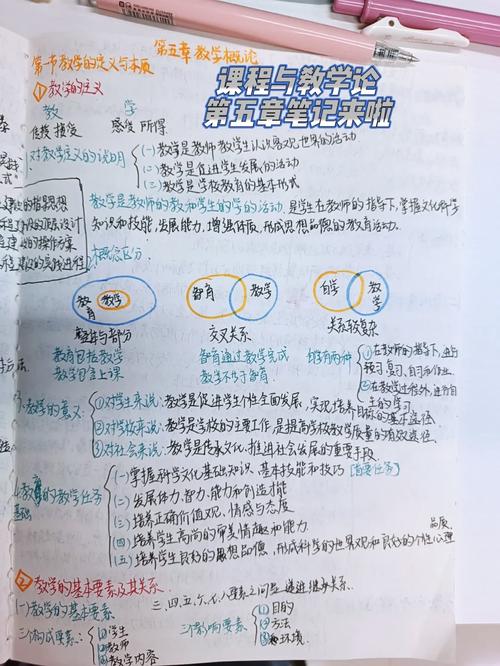 课程与教学论
第五章笔记来啦
第五章 教学概论
第一节 教学的定义与本质
①教学的定义
教 学
传授 接受 感受 所得
对教学定义的说明
(一)教学是教师教学生认识客观世界的活动
(二)教学是促进学生发展的活动
(三)教学是学校教育的基本形式
教学是教师的教和学生的学的活动.是学生在教师的指导下,掌握文化科学
知识和技能,发展能力,增强体质,形成思想品德的教育活动.
概念区分
教育 教学
智育 教学
自学 教学
整体与部分 交叉关系 关系较复杂
教育包括教学 智育通过教学完成
教学包含上课 教学不等于智育
自学有两种
①在教师的指导下,进行
预习 复习,自习而作业
②在教学过程外,进行自
主的学习
教学的意义:
①对学生来说:教学是促进学生个性全面发展,实现培养目标的基本途径
②对学校来说:教学是学校的主要工作,是提高学校教学质量的有效途径
③对社会来说:教学是传承文化,推进社会发展的重要手段
教学任务
(一)掌握科学文化基础知识、基本技能和技巧[首要任务]
(二)发展体力、智力、能力和创造才能
(三)培养正确价值观、情感与态度
(四)培养学生高尚的审美情趣和能力
品质
(五)培养学生良好的思想品德,形成科学的世界观和良好的个性心理
②教学的基本要素及其关系.
三、四、五、六、七、八要素之间是递进继承关系.
(一)教学的基本要素
三个构成要素:
①学生
②教师
③教学内容
三个影响要素
①目的
②方法
③环境